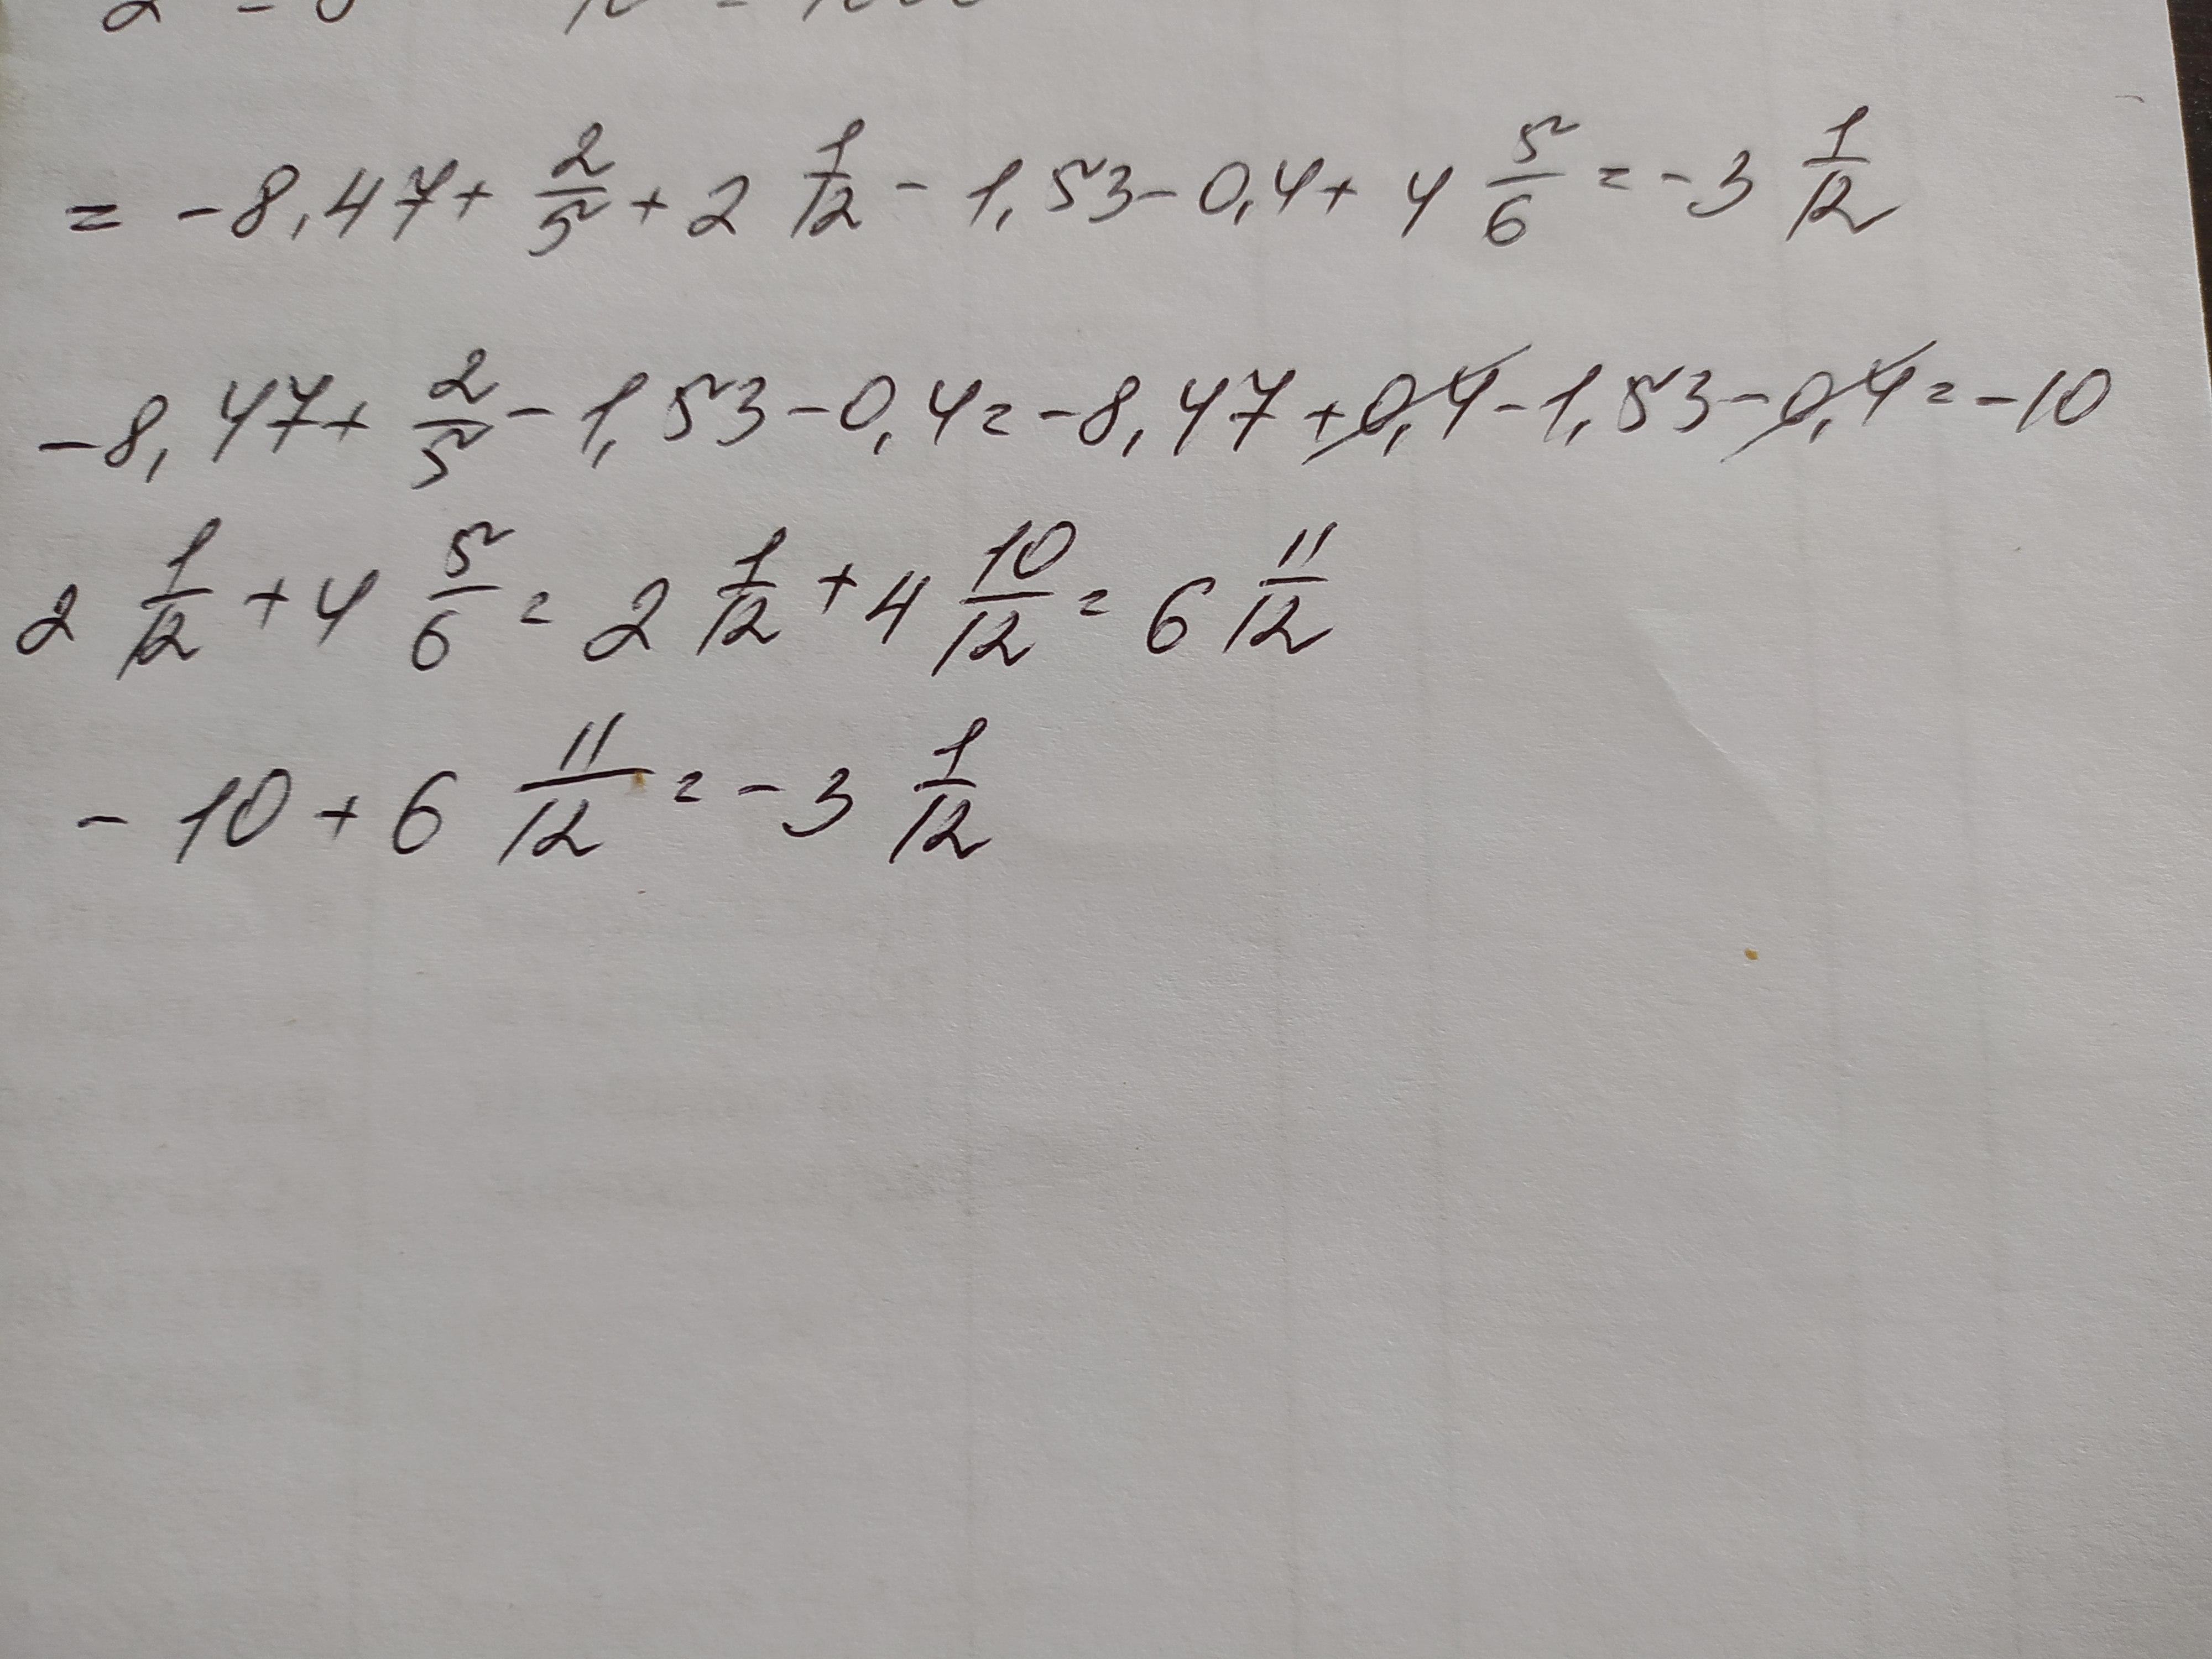 = -8,47 + 2/5 + 2 1/12 - 1,53 - 0,4 + 4 5/6 = -3 1/12
-8,47 + 2/5 - 1,53 - 0,4 = -8,47 + 0,4 - 1,53 - 0,4 = -10
2 1/12 + 4 5/6 = 2 1/12 + 4 10/12 = 6 11/12
-10 + 6 11/12 = -3 1/12